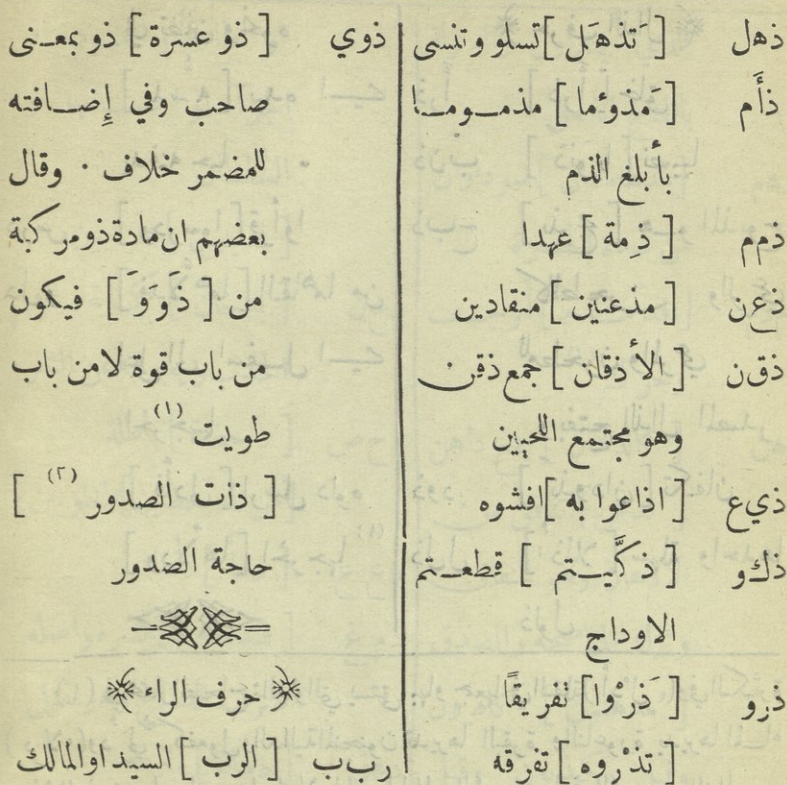 ذهل [ تَذهَل ] تسلو وتنسى
ذأَم [ مَذوءُما ] مذموما
بأبلغ الذم
ذمم [ ذِمة ] عهدا
ذعن [ مذعنين ] منقادين
ذقن [ الأذقان ] جمع ذقن
وهو مجتمع اللحيين
ذيع [ اذاعوا به ] افشوه
ذكو [ ذكَّيتم ] قطعتم
الاوداج
ذرو [ ذَرْوا ] تفريقًا
[ تذْروه ] تفرقه
ذوي [ ذو عسرة ] ذو بمعنى
صاحب وفي إِضافته
للمضمر خلاف . وقال
بعضهم ان مادة ذو مركبة
من [ ذَوَوَ ] فيكون
من باب قوة لامن باب
طويت (١)
[ ذات الصدور (٢) ]
حاجة الصدور
﴿ حرف الراء ﴾
ربب [ الرب ] السيد اوالمالك